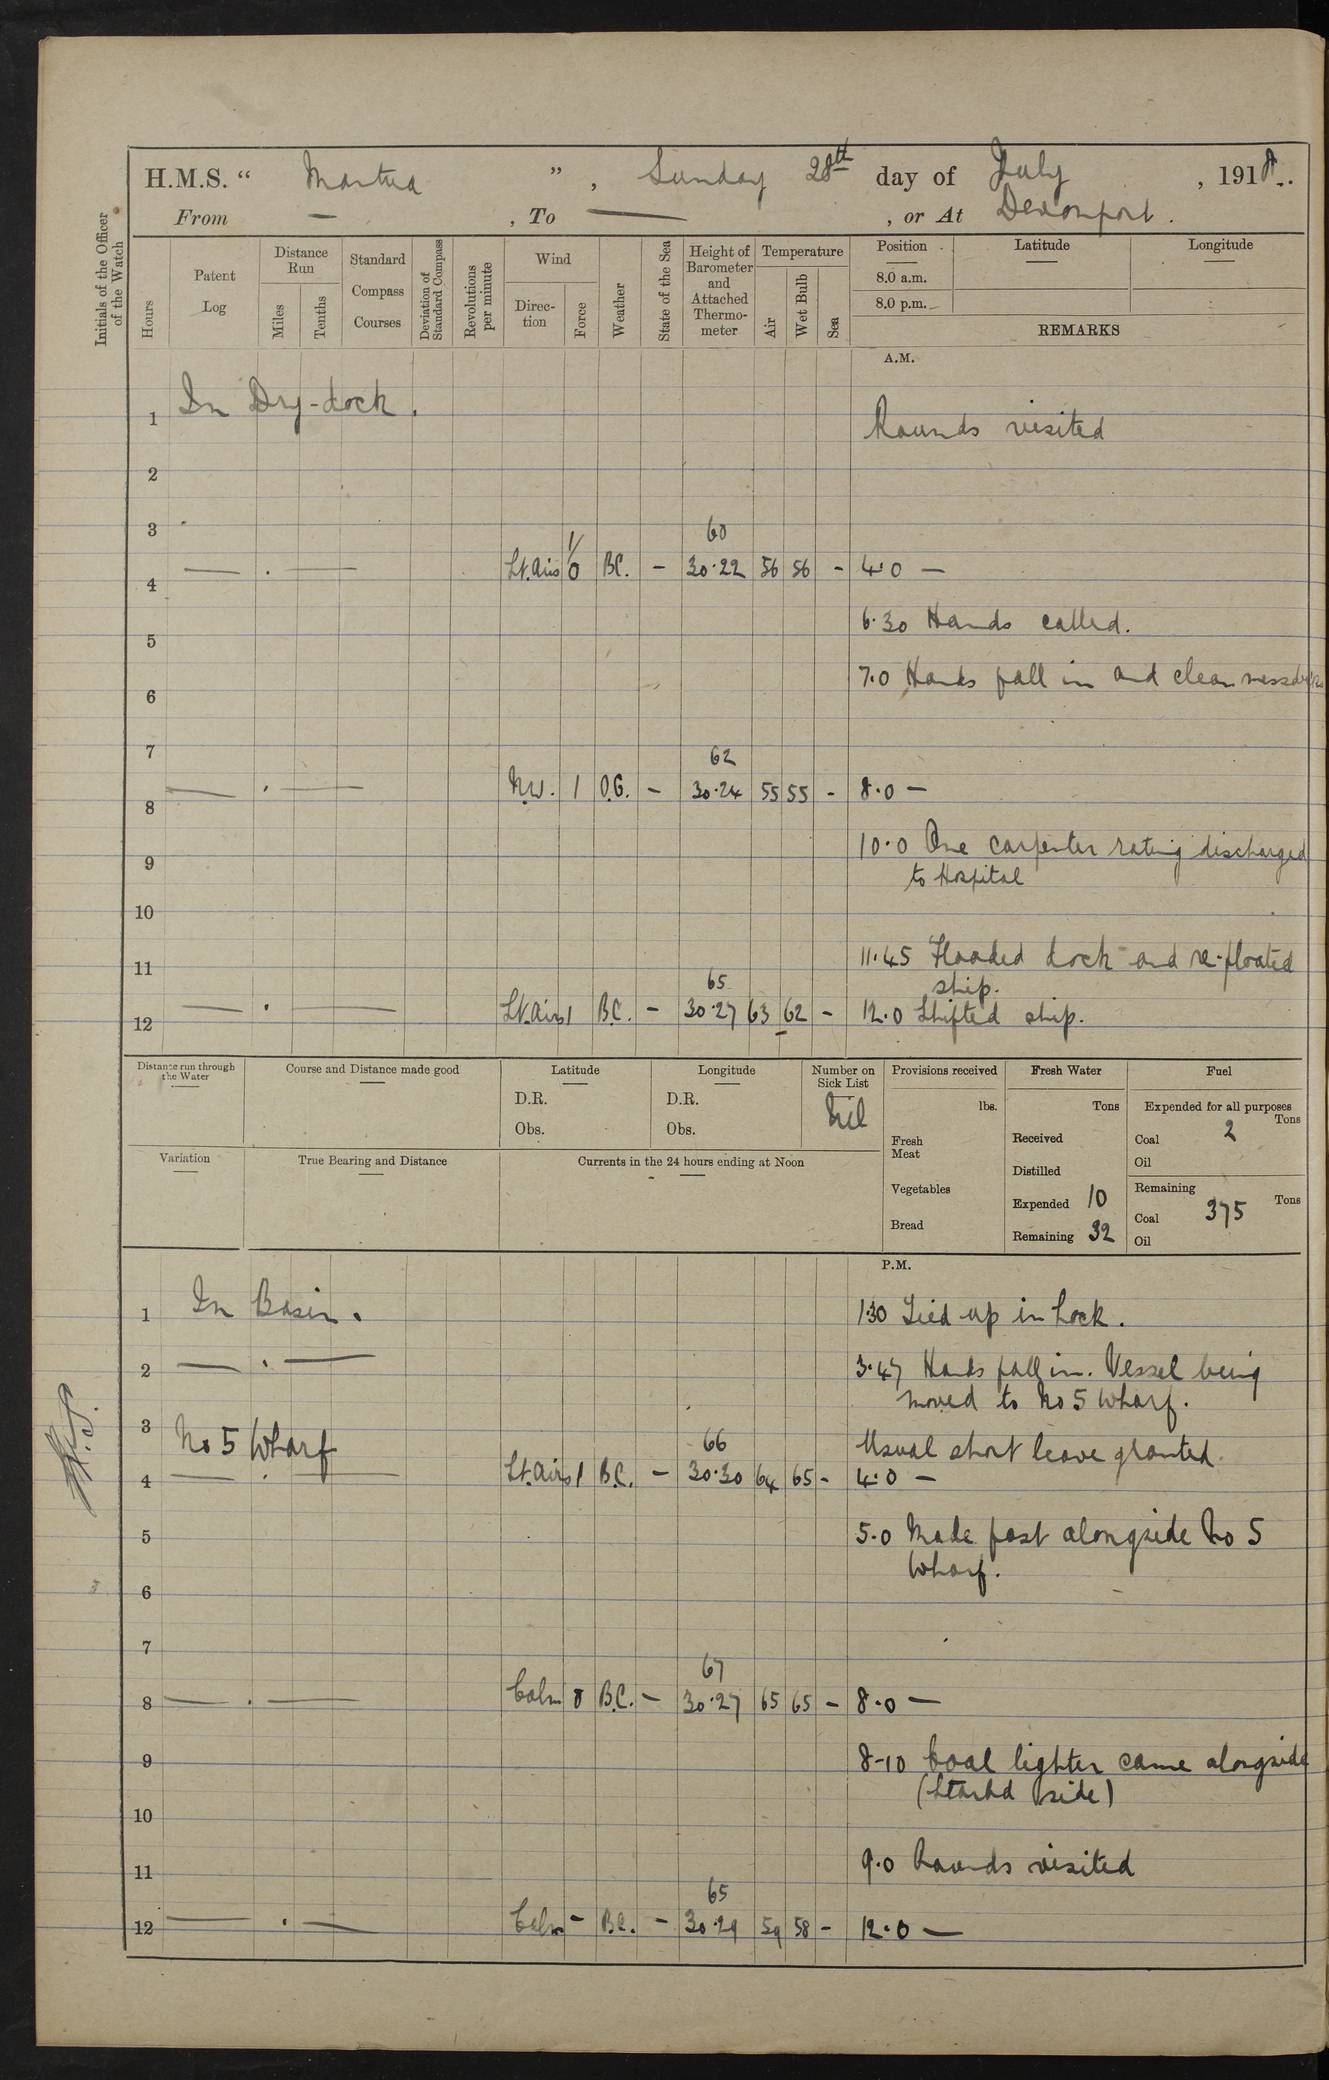 H.M.S. “ Mantua ” , Sunday 28th day of July , 1918.
From — , To — , or At Devonport .
Initials of the Officer of the Watch
Hours
Patent Log
Distance Run
Miles
Tenths
Standard Compass Courses
Deviation of Standard Compass
Revolutions per minute
Wind
Direc-tion
Force
Weather
State of the Sea
Height of Barometer and Attached Thermo-meter
Temperature
Air
Wet Bulb
Sea
Position
Latitude
Longitude
8.0 a.m.
8.0 p.m.
REMARKS
A.M.
In Dry-dock .
1
Rounds visited
2
3
60
4 — . — Lt. Airs 1/0 B.C. — 30.22 56 56 - 4.0 —
6.30 Hands called.
5
7.0 Hands fall in and clean messdecks
6
7
62
8 — . — N.W. 1 O.G. — 30.24 55 55 - 8.0 —
10.0 One carpenter rating discharged
9
to Hospital
10
11.45 Flooded dock and re-floated
11
65
ship.
12 — . — Lt. Airs 1 B.C. — 30.27 63 62 - 12.0 Shifted ship.
Distance run through the Water
Course and Distance made good
Latitude
D.R.
Obs.
Longitude
D.R.
Obs.
Number on Sick List
Nil
Provisions received
lbs.
Fresh Meat
Vegetables
Bread
Fresh Water
Tons
Received
Distilled
Expended 10
Remaining 32
Fuel
Expended for all purposes
Tons
Coal 2
Oil
Remaining
Tons
Coal 375
Oil
Variation
True Bearing and Distance
Currents in the 24 hours ending at Noon
P.M.
1 In Basin . 1.30 Tied up in Lock.
2 — . — 3.47 Hands fall in. Vessel being
moved to No 5 Wharf.
3 No 5 Wharf
66
Usual short leave granted.
4 — . — Lt. Airs 1 B.C. — 30.30 64 65 - 4.0 —
5 5.0 Made fast alongside No 5
Wharf.
6
7
67
8 — . — Calm 0 B.C. — 30.27 65 65 - 8.0 —
9 8-10 Coal lighter came alongside
(Starbd side)
10
11 9.0 Rounds visited
65
12 — . — Calm - B.C. — 30.29 59 58 - 12.0 —